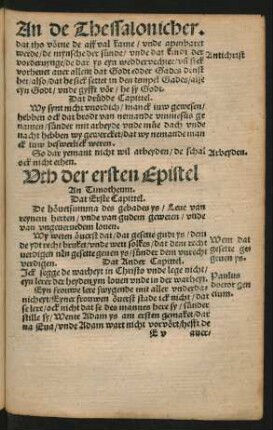 An de Thessalonicher.
dat tho vörne de affval kame / vnde apenbaret
werde / de mynsche der sünde / vnde dat kindt der
vordervynge / de dar ys eyn weddervechter / vñ sick
vorhevet auer allent dat Godt edder Gades denst
het / also / dat he sick settet in den tempel Gades / alse
eyn Godt / vnde gyfft vör / he sy Godt.
Antichrist
Dat drüdde Capittel.
Wy synt nicht vnordich / manck iuw gewesen /
hebben ock dat brodt van nemande vmmesüs ge
namen / sünder mit arbeyde vnde möie dach vnde
nacht hebben wy gewercket / dat wy nemande man
ck iuw beswerlick weren.
So dar yemant nicht wil arbeyden / de schal
ock nicht ethen.
Arbeyden.
Vth der ersten Epistel
An Timotheum.
Dat Erste Capittel.
De höuetsumma des gebades ys / Leue van
reynem herten / vnde van gudem geweten / vnde
van vngeuerwedem louen.
Wy weten äuerst dat / dat gesette gudt ys / dem
de ydt recht bruket / vnde wett solkes / dat dem recht
uerdigen nen gesette geuen ys / sünder dem vnrecht
verdigen.
Wem dat
gesette ge
geuen ys.
Dat Ander Capittel.
Ick segge de warheyt in Christo vnde lege nicht /
eyn lerer der heyden ym louen vnde in der warheyt.
Paulus
doctor gen
tium.
Eyn frouwe lere swygende mit aller vnderda-
nicheyt / Eyner frouwen äuerst stade ick nicht / dat
se lere / ock nicht dat se des mannes here sy / sünder
stille sy / Wente Adam ys am ersten gemaket / dar
na Eua / vnde Adam wart nicht vorvört / hefft de
E v
auer /